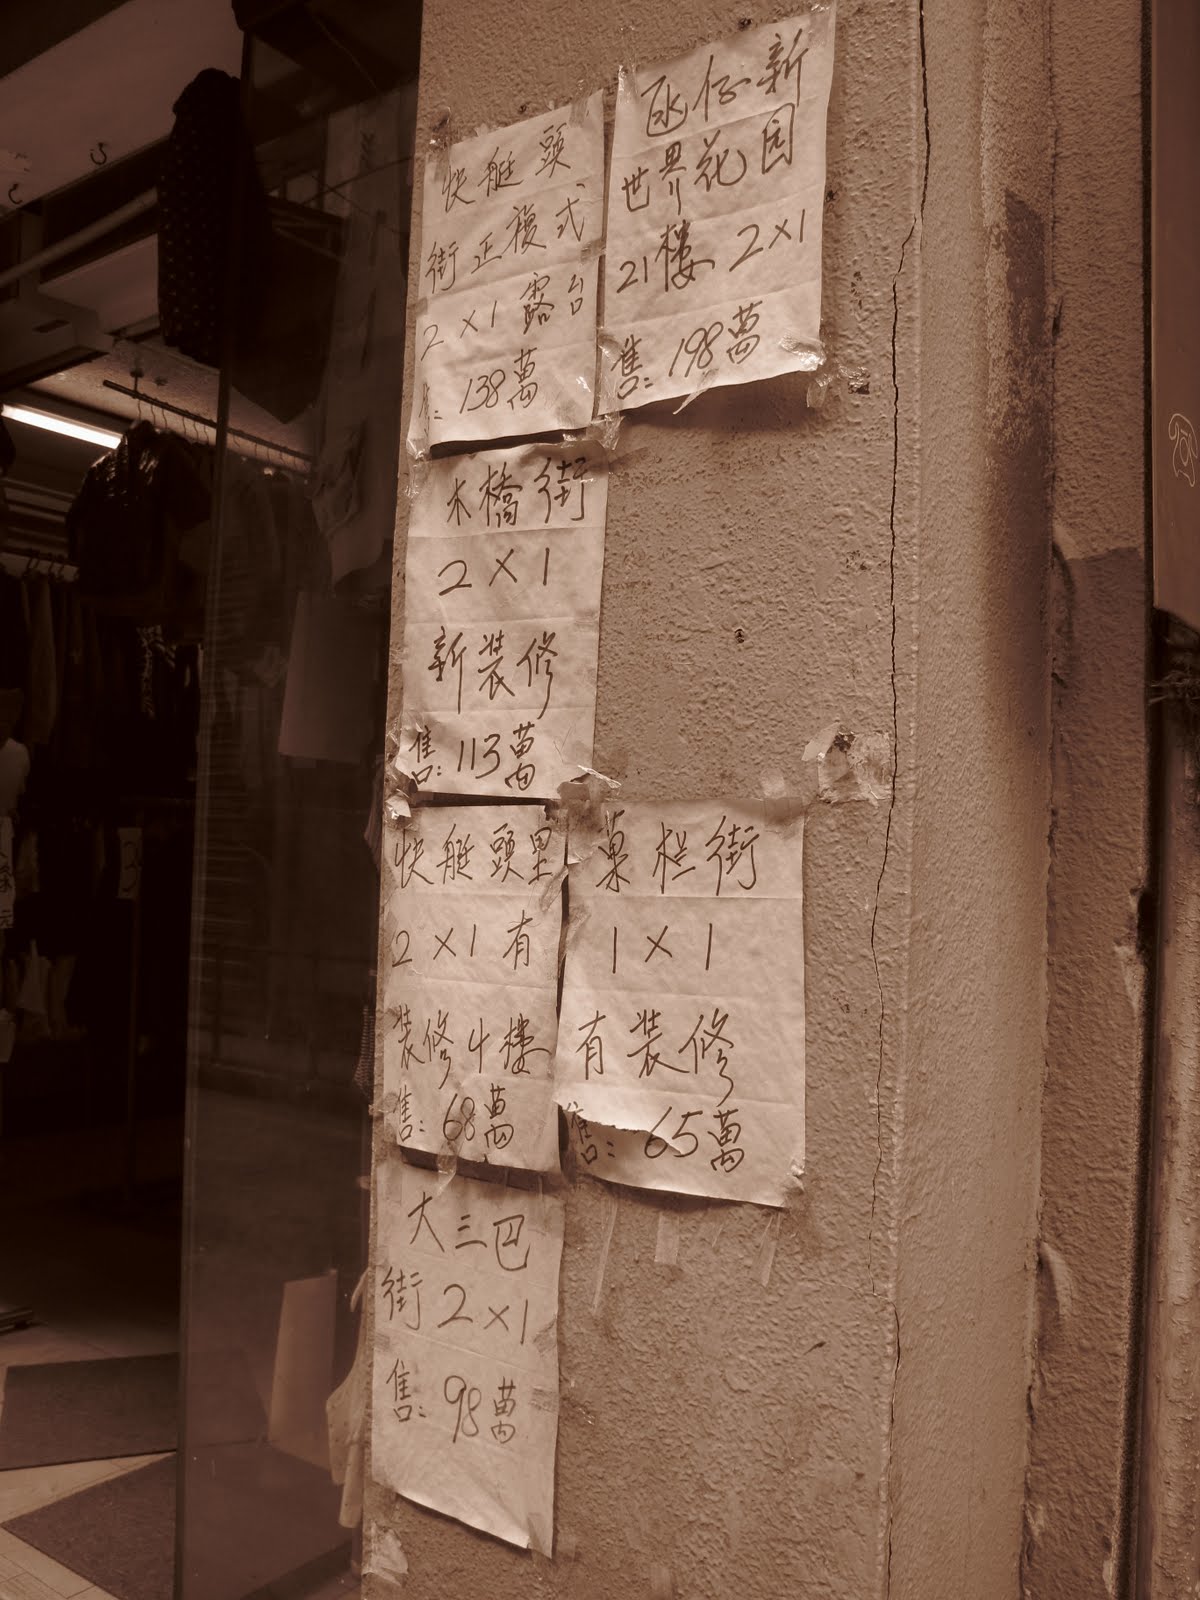 快艇頭
街正複式
2×1露台
138萬
氹仔新
世界花园
21樓 2×1
售:198萬
木橋街
2×1
新装修
售:113萬
快艇頭里
2×1有
装修4樓
售:68萬
菓栏街
1×1
有装修
售:65萬
大三巴
街2×1
售:98萬